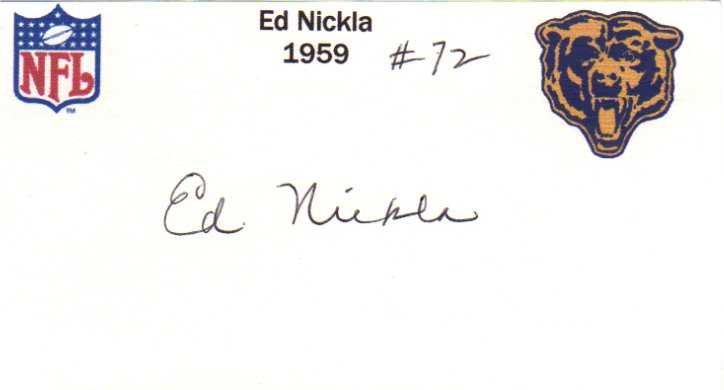 Ed Nickla
1959 #72
NFL
TM
Ed Nickla